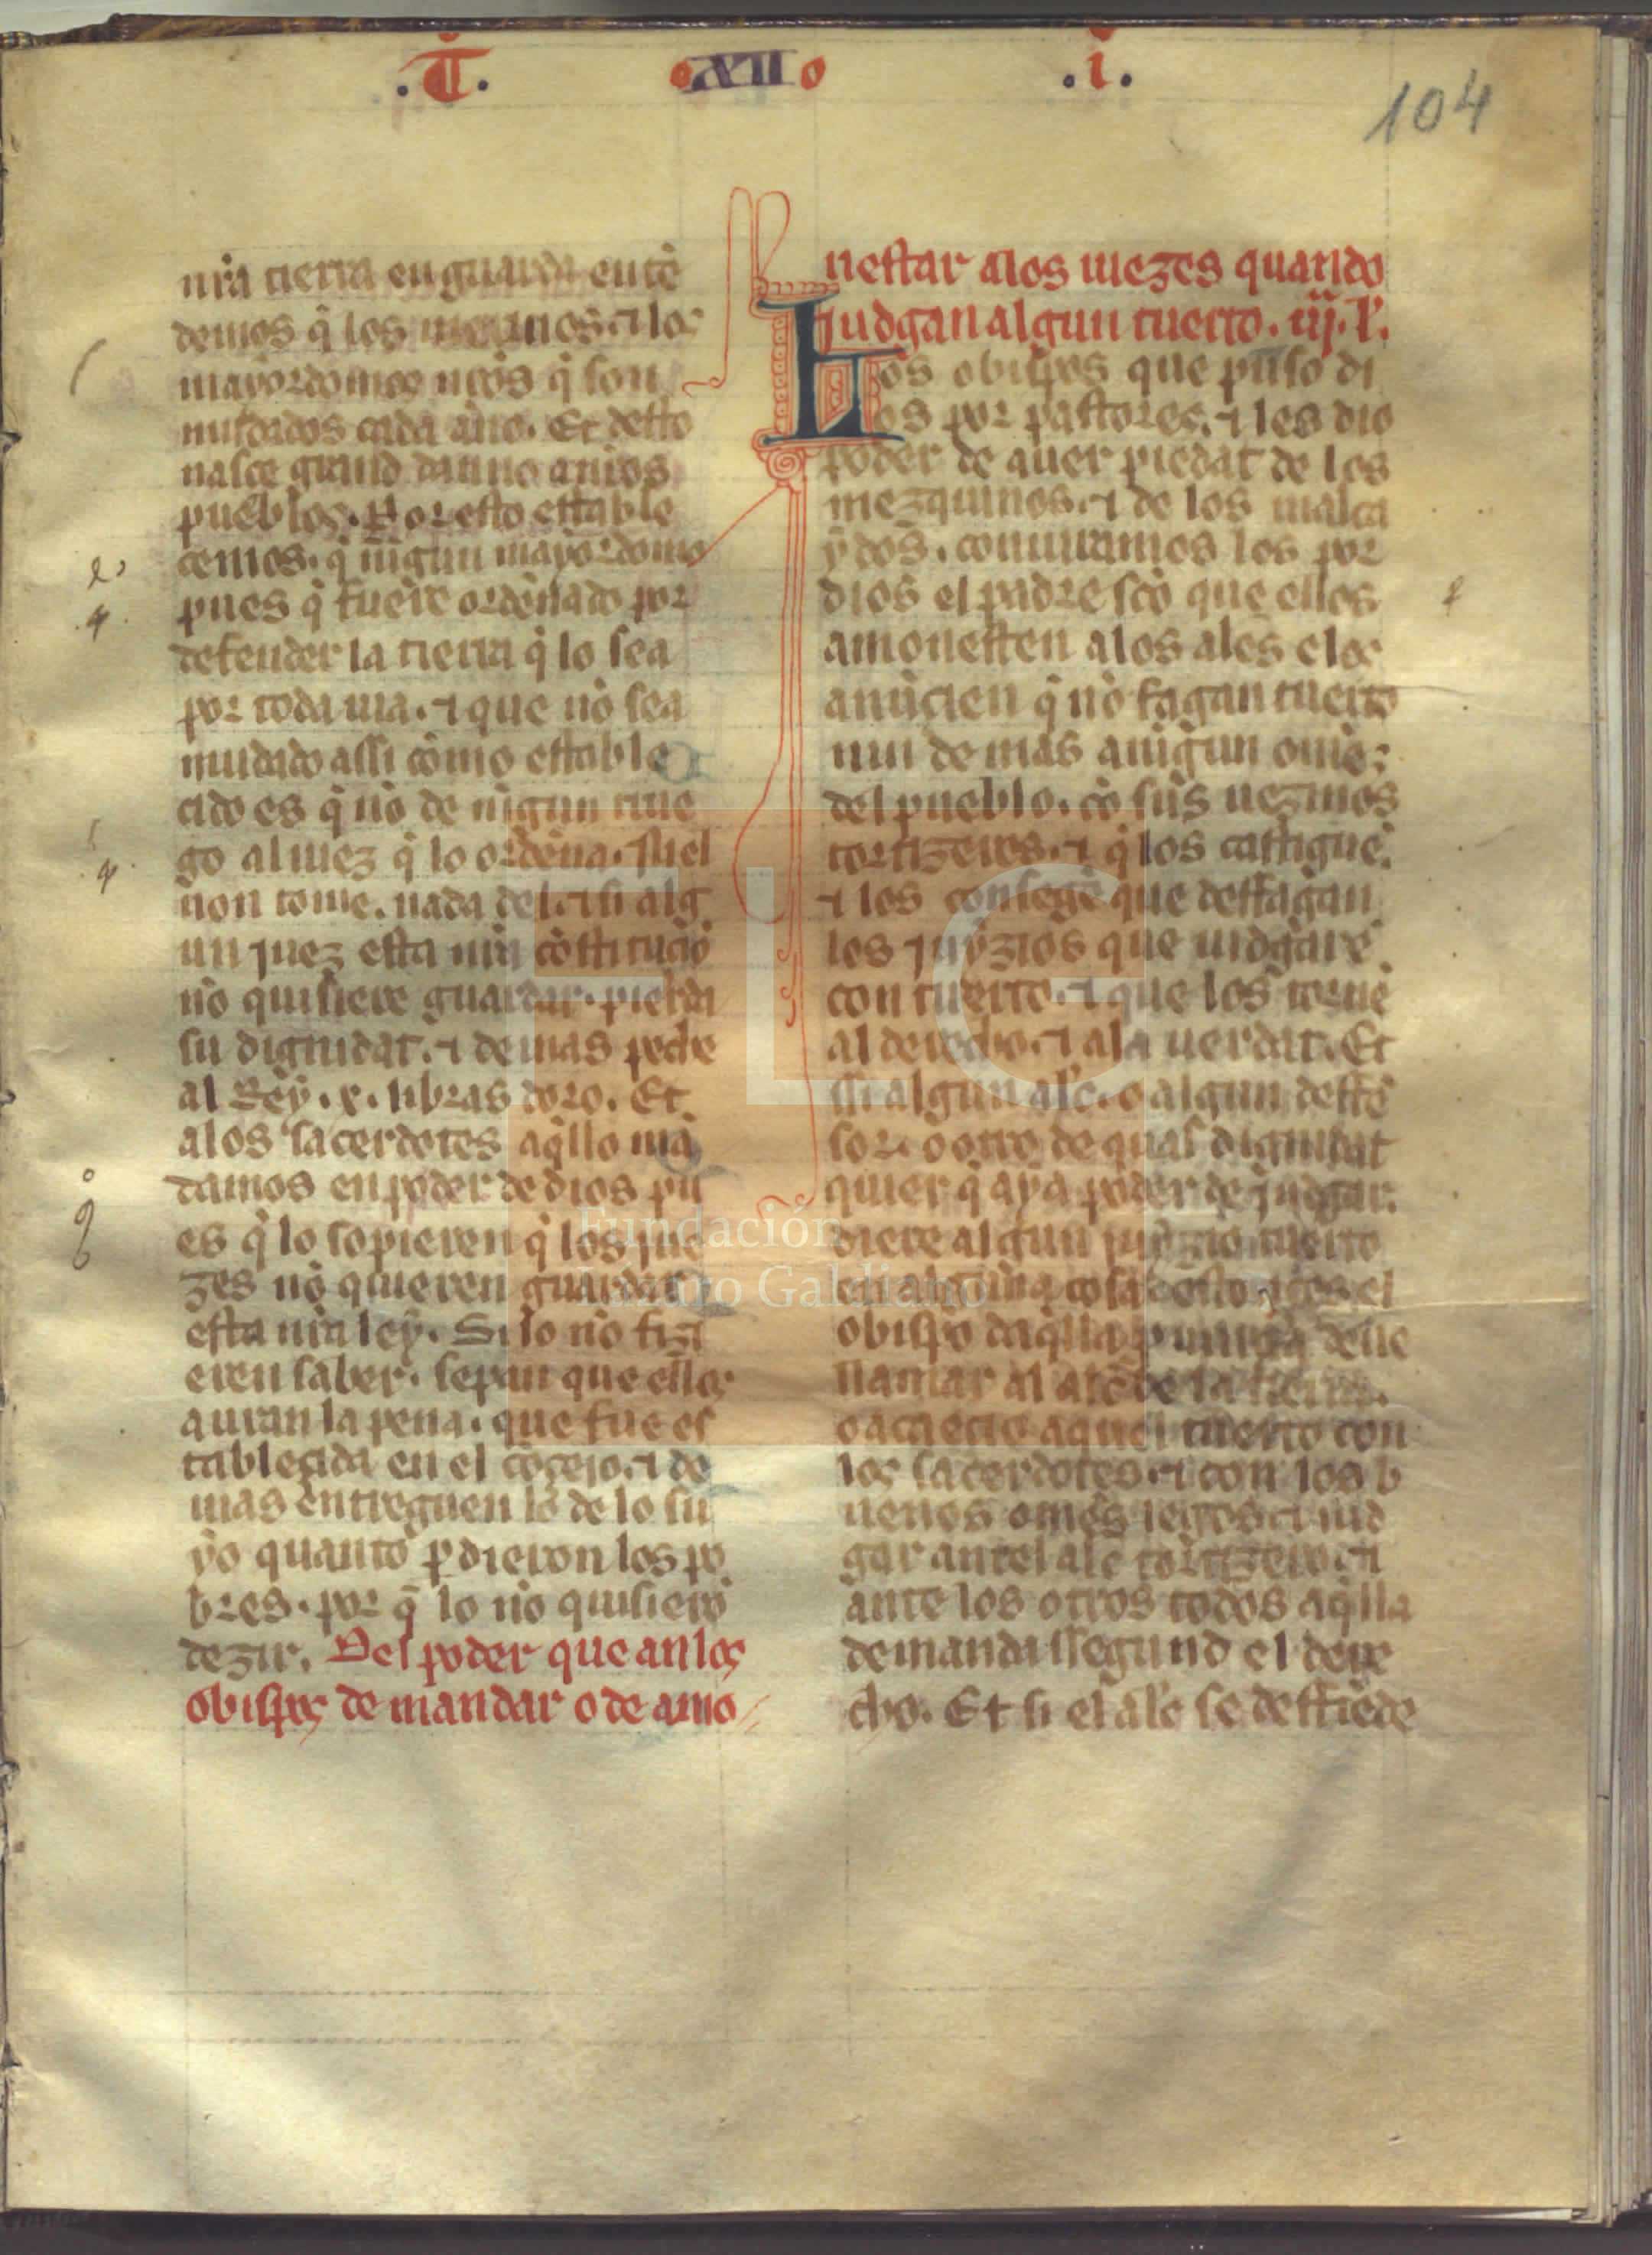 .T. XII .i.
104
nr̃a tierra en guarda entẽ
demos q̃ los merinos ⁊ los
mayordomos nr̃os q̃ son
mudados cada anno. Et desto
nasce grand danno a nr̃os
pueblos. Por esto estable
cemos. q̃ nigun mayordomo
pues q̃ fuere ordenado por
defender la tierra q̃ lo sea
por toda uia. ⁊ que nõ sea
mudado assi cõmo estable
cido es q̃ nõ de nĩgun rue
go al iuez q̃ lo ordena. nĩ el
non tome. nada del. ⁊ si alg
un juez esta nr̃a cõstituciõ
nõ quisiere guardar. pierda
su dignidat. ⁊ de mas peche
al Rey. x. libras doro. Et
alos sacerdotes aq̃llo mã
damos en poder de dios pu
es q̃ lo sopieren q̃ los jue
zes nõ quieren guardar
esta nr̃a ley. Si lo nõ fizi
eren saber. sepan que ellos
auran la pena. que fue es
tablecida en el cõceio. ⁊ de
mas entreguen lo de lo su
yo quanto ꝑdieron los po
bres. por q̃ lo nõ quisierõ
dezir. Del poder que an los
obispos de mandar o de amo
nestar alos iuezes quando
judgan algun tuerto. iij. l'.
Los obispos que puso di
os por pastores. ⁊ les dio
poder de auer piedat de los
mezquinos. ⁊ de los malca
ydos. coniuramos los por
dios el padre sc̃o que ellos
amonesten alos alc̃s e los
anũcien q̃ nõ fagan tuerto
nin de mas a nigun ome
del pueblo. cõ sus uezinos
tortizeros. ⁊ q̃ los castiguẽ.
⁊ los conseiẽ que desfagan
los juyzios que iudgarẽ
con tuerto. ⁊ que los tornẽ
al derecho. ⁊ ala uerdat. Et
si algun alc̃. o algun deffẽ
sor. o otro de qual dignidat
quier q̃ aya poder de judgar.
diere algun juyzio tuerto
en alguna cosa el
obispo daq̃lla deue
llamar al alc̃ de la tierra.
o acaecio aquel tuerto con
los sacerdotes. ⁊ con los b
uenos om̃es legos ⁊ iud
gar antel alc̃ tortizero. ⁊
ante los otros todos aq̃lla
demanda segund el dere
cho. Et si el alc̃ se deffiẽde
FLG
Fundación
Lázaro Galdiano